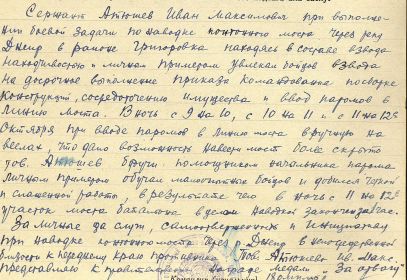 Сержант Антюшев Иван Максимович при выполне-
нии боевой задачи по наводке понтонного моста через реку
Днепр в районе Григоровка находясь в составе взвода
находчивостью и личным примером увлекая бойцов взвода
на досрочное выполнение приказа командования по сборке
конструкций, сосредоточению имущества и ввод паромов в
линию моста. В ночь с 9 на 10, с 10 на 11 и с 11 на 12
Октября при вводе паромов в линию моста в ручную на
веслах, что дало возможность навести мост более скрыто
тов. Антюшев будучи помощником начальника парома
личным примером обучал малоопытных бойцов и добился четкой
и слаженной работы, в результате чего в ночь с 11 на 12
участок моста батальона был наводкой закончен
За личные заслуги, самоотверженность и инициативу
при наводке понтонного моста через р. Днепр в непосредственной
близости к переднему краю противника Тов. Антюшев Ив. Макс.
представляю к правительственной награде медаль "За отвагу"